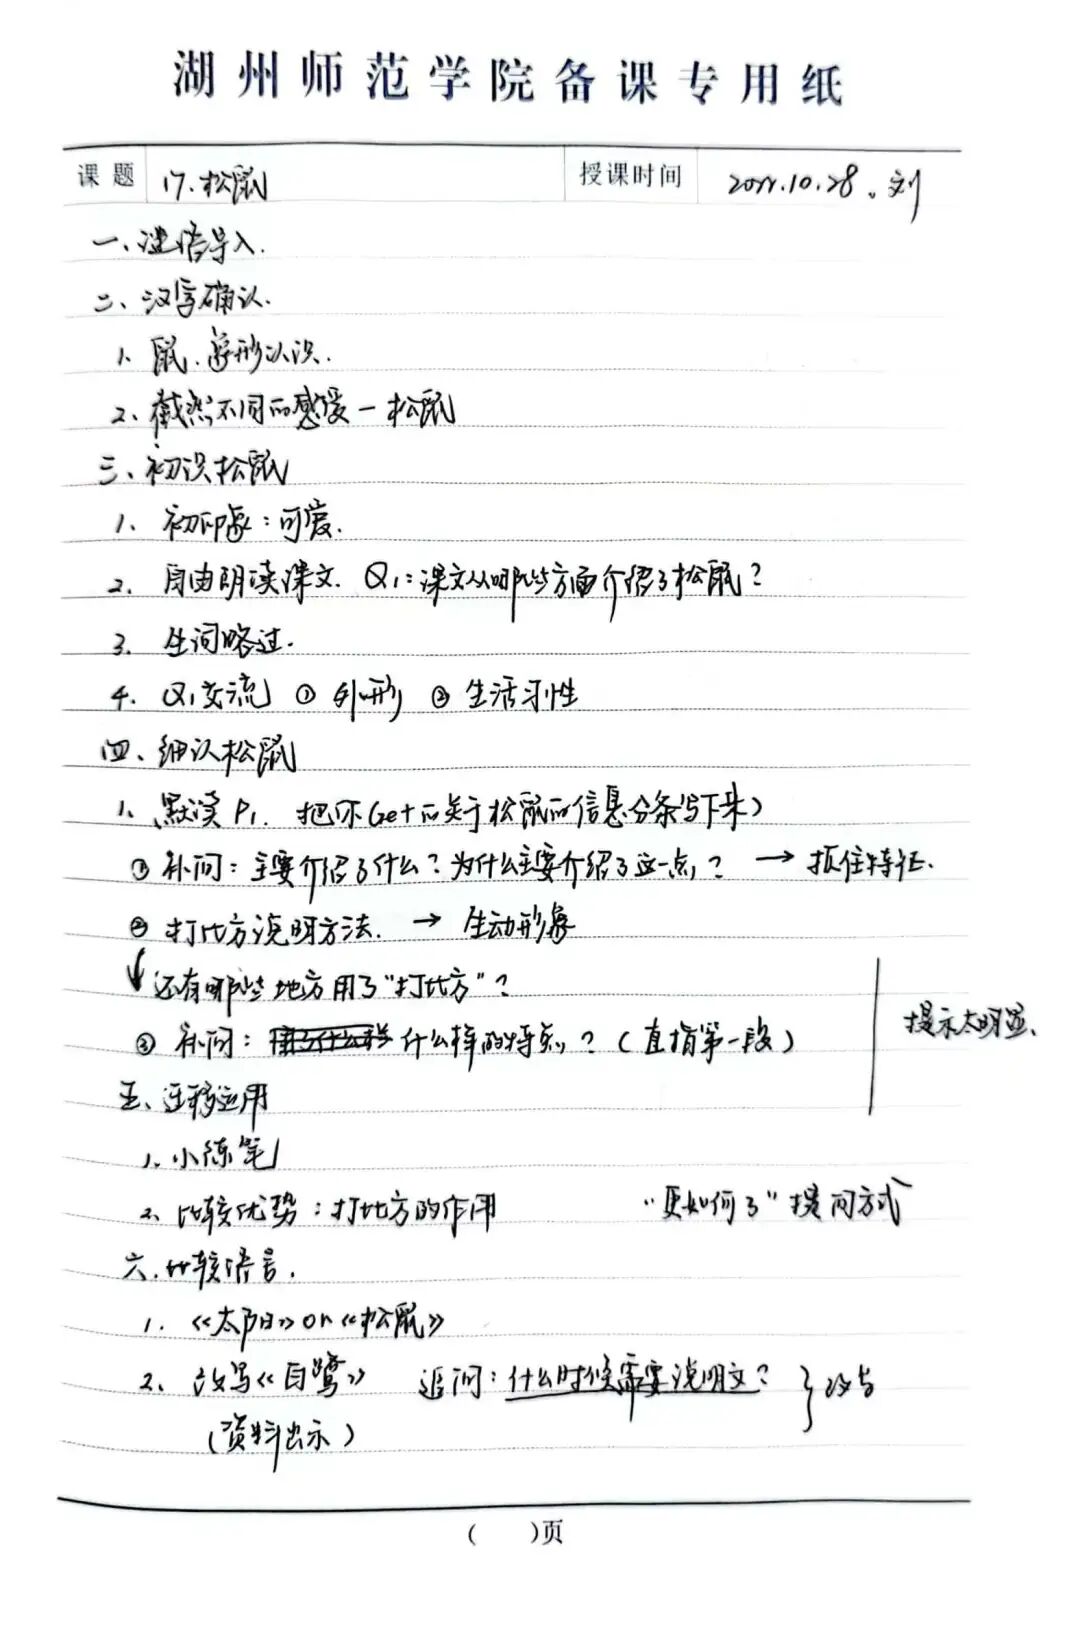 湖州师范学院备课专用纸
课题 17.松鼠 授课时间 2022.10.28。刘
一、谜语导入.
二、汉字确认.
1. 鼠.字形认识.
2. 截然不同的感受—松鼠
三、初识松鼠
1. 初印象:可爱.
2. 自由朗读课文. Q1:课文从哪些方面介绍了松鼠?
3. 生词略过.
4. Q1交流 ① 外形 ② 生活习性
四、细认松鼠
1. 默读P1. 把你Get的关于松鼠的信息分条写下来)
① 补问:主要介绍了什么?为什么主要介绍了这一点? → 抓住特征.
② 打比方说明方法. → 生动形象
↓还有哪些地方用了“打比方”?
③ 补问: 什么样的特点?(直指第一段)
提示太明显.
五、迁移运用
1. 小练笔
2. 比较优势:打比方的作用 “更如何了”提问方式
六.比较语言.
1. 《太阳》or《松鼠》
2. 改写《白鹭》 追问:什么时候需要说明文? }
(资料出示)
( )页